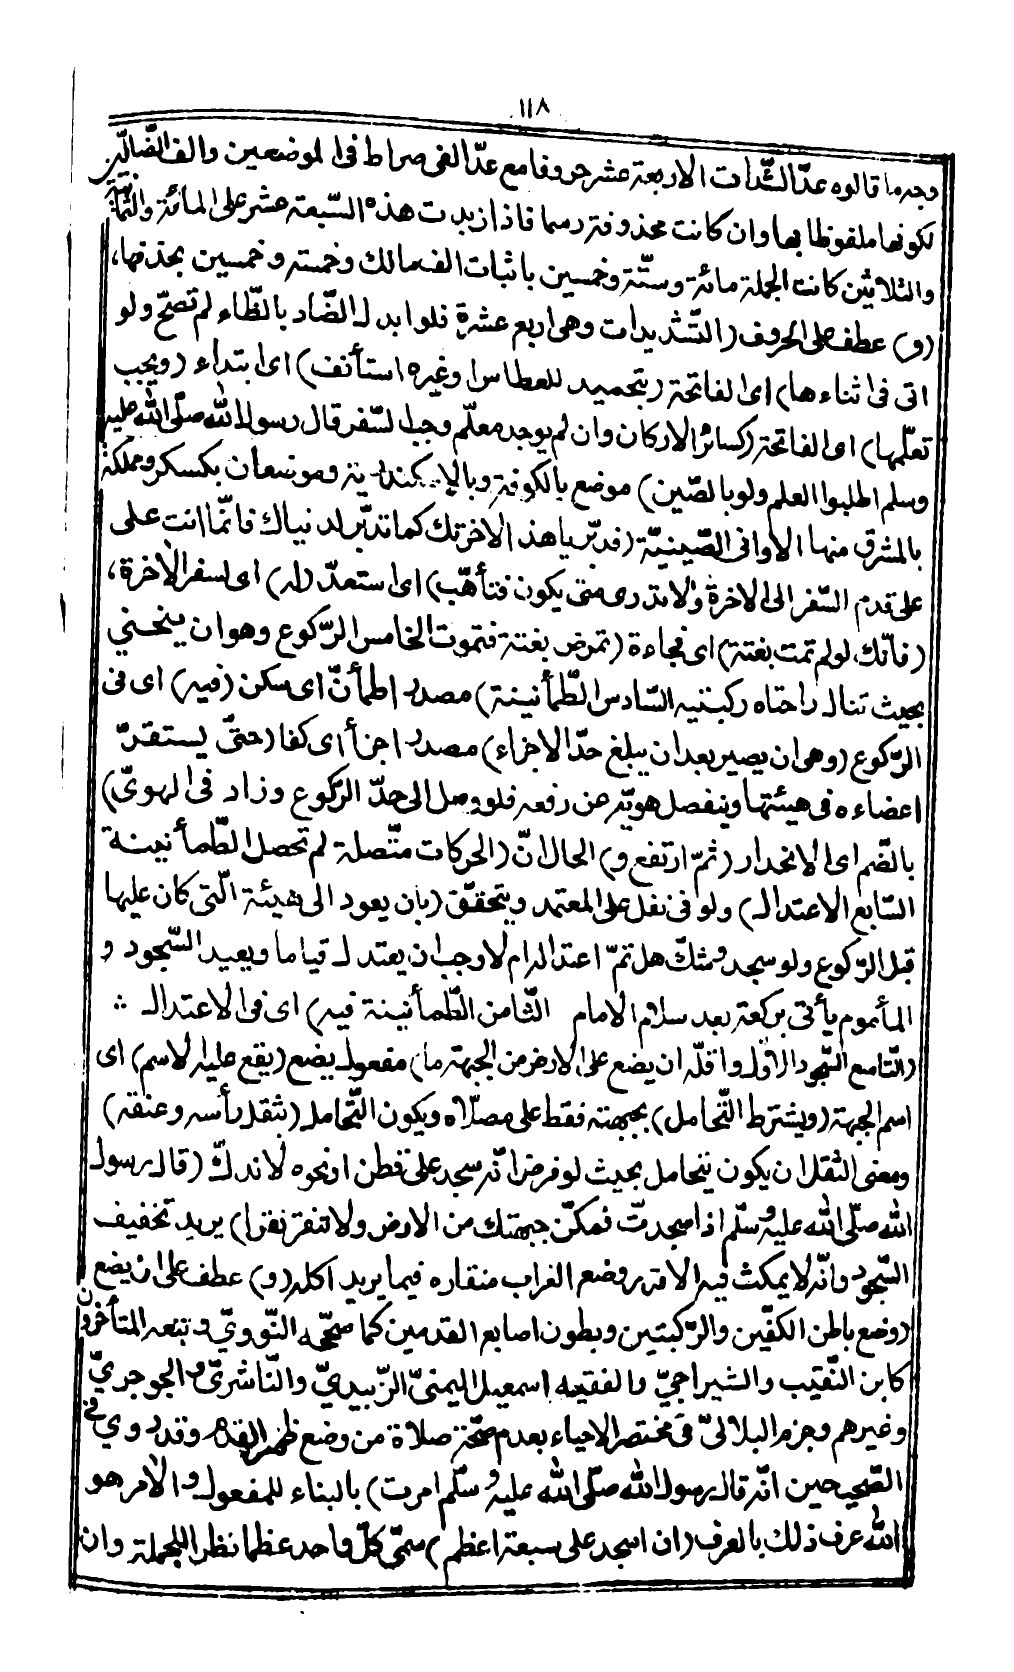 ١١٨
وجه ما قالوه عدّ الشّدات الاربعة عشر حروفا مع عدّ الفى صراط فى الموضعين والف الضّالّين
لكونها ملفوظا بها وان كانت محذوفة رسما فاذا زيدت هذه السّبعة عشر على المائة والثمانية
والثلاثين كانت الجملة مائة وستّة وخمسين باثبات الف مالك وخمسة وخمسين بحذفها،
(و) عطف على الحروف (التّشديدات وهى اربع عشرة فلو ابدل الضّاد بالظّاء لم تصحّ ولو
اتى فى اثناءها) اى الفاتحة (بتحميد للعطاس او غيره استأنف) اى ابتداء (ويجب
تعلّمها) اى الفاتحة (كسائر الاركان وان لم يوجد معلّم وجب السّفر قال رسول الله صلّى الله عليه
وسلم اطلبوا العلم ولو بالصّين) موضع بالكوفة وبالاسكندرية وموضعان بكسكر ومملكة
بالمشرق منها الاوانى الصّينيّة (فدبّر يا هذا لاخرتك كما تدبّر لدنياك فانّما انت على
على قدم السّفر الى الاخرة ولا تدرى متى يكون فتأهّب) اى استعدّ (له) اى لسفر الاخرة،
(فانّك لو لم تمت بغتة) اى فجاءة (تمرض بغتة فتموت الخامس الرّكوع وهو ان ينحني
بحيث تنال راحتاه ركبتيه السّادس الطّمأنينة) مصدر اطمأنّ اى سكن (فيه) اى فى
الرّكوع (وهى ان يصير بعد ان يبلغ حدّ الاجزاء) مصدر اجزأ اى كفا (حتّى يستقرّ
اعضاءه فى هيئتها وينفصل هويّه عن رفعه فلو وصل الى حدّ الرّكوع وزاد فى الهويّ)
بالضّم اى الانحدار (ثمّ ارتفع و) الحال انّ (الحركات متّصلة لم تحصل الطّمأنينة
السّابع الاعتدال) ولو فى نفل على المعتمد ويتحقّق (بان يعود الى هيئة الّتى كان عليها
قبل الرّكوع ولو سجد وشكّ هل تمّ اعتداله ام لا وجب ان يعتدل قياما ويعيد السّجود و
المأموم يأتى بركعة بعد سلام الامام الثّامن الطّمأنينة فيه) اى فى الاعتدال
(التّاسع السّجود الاوّل واقلّه ان يضع على الارض من الجبهة ما) مفعول يضع (يقع عليه الاسم) اى
اسم الجبهة (ويشترط التّحامل) بجبهته فقط على مصلّاه ويكون التّحامل (بثقل رأسه وعنقه)
ومعنى الثقل ان يكون يتحامل بحيث لو فرض انّه سجد على قطن او نحوه لاندكّ (قال رسول
الله صلّى الله عليه وسلّم اذا سجدتّ فمكّن جبهتك من الارض ولا تنقر نقرا) يريد تخفيف
السّجود وانّه لا يمكث فيه الا قدر وضع الغراب منقاره فيما يريد اكله (و) عطف على ان يضع
(وضع باطن الكفّين والرّكبتين وبطون اصابع القدمين كما صحّحه النّوويّ وتبعه المتأخرون
كابن النّقيب والشيراجيّ والفقيه اسمعيل اليمنىّ الزّبيديّ والنّاشرىّ والجوجريّ
وغيرهم وجزم البلالىّ فى مختصر الاحياء بعدم صحّة صلاة من وضع ظهر القدم وقد روي فى
الصّحيحين انّه قال رسول الله صلّى الله عليه وسلّم امرت) بالبناء للمفعول والآمر هو
الله عرف ذلك بالعرف (ان اسجد على سبعة اعظم) سمّى كلّ واحد عظما نظرا للجملة وان